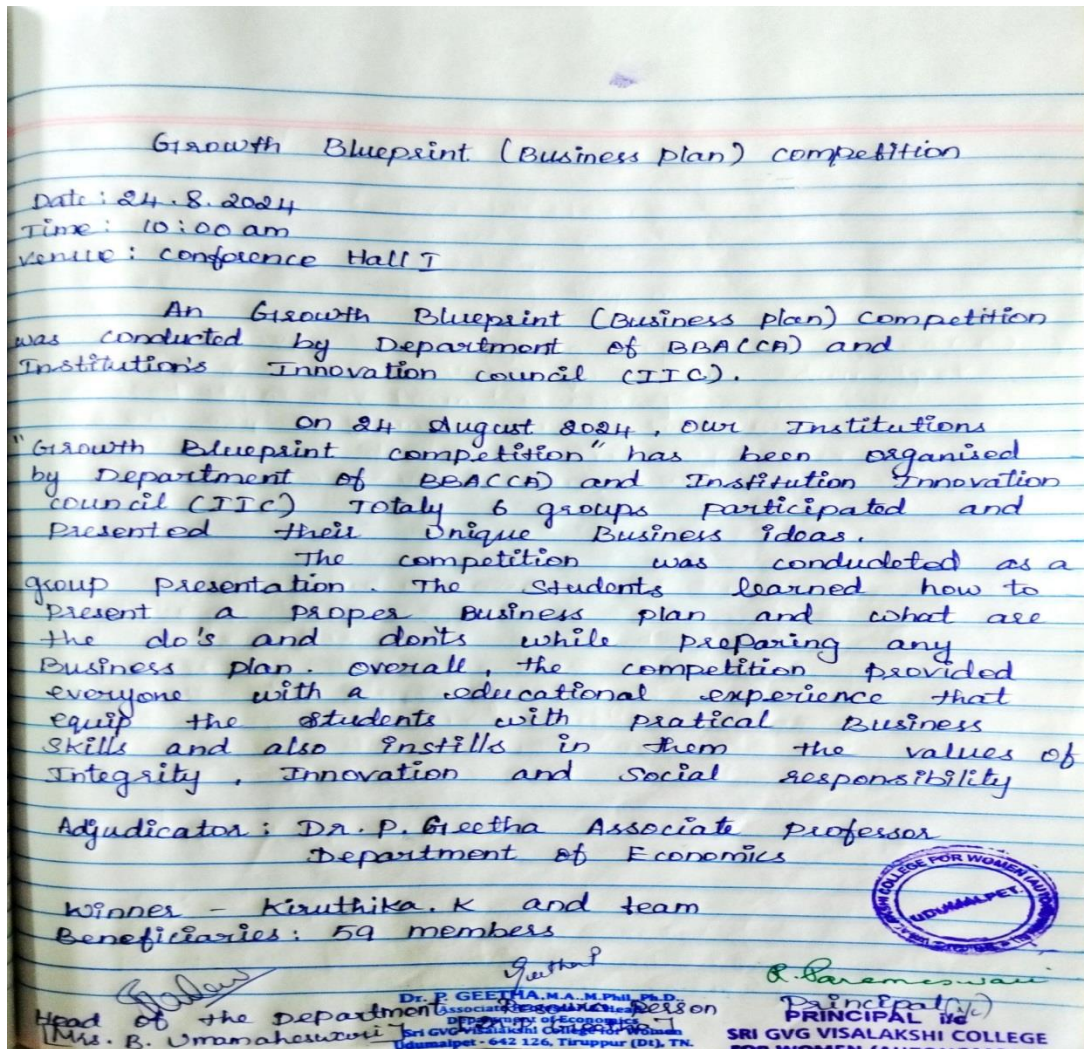 Growth Blueprint (Business plan) competition
Date : 24.8.2024
Time : 10:00 am
venue : conference Hall I
An Growth Blueprint (Business plan) competition
was conducted by Department of BBA(CA) and
Institution's Innovation council (IIC).
On 24 August 2024, our Institutions
"Growth Blueprint competition" has been organised
by Department of BBA(CA) and Institution Innovation
council (IIC) Totaly 6 groups participated and
presented their Unique Business ideas.
The competition was conducted as a
group presentation. The students learned how to
present a proper Business plan and what are
the do's and don'ts while preparing any
Business plan. overall, the competition provided
everyone with a educational experience that
equip the students with pratical Business
skills and also instills in them the values of
Integrity, Innovation and Social responsibility
Adjudicator : Dr. P. Geetha Associate professor
Department of Economics
Winner - Kiruthika. K and team
Beneficiaries : 59 members
COLLEGE FOR WOMEN
UDUMALPET.
Geetha P
R. Parameswari
Dr. P. GEETHA, M.A., M.Phil., Ph.D.,
Head of the Department
Resource person
Principal (i/c)
Associate
Department of Economics
PRINCIPAL i/c
Mrs. B. Umamaheswari
Sri GVG Visalakshi College for Women
SRI GVG VISALAKSHI COLLEGE
Udumalpet - 642 126, Tiruppur (Dt), TN.
FOR WOMEN